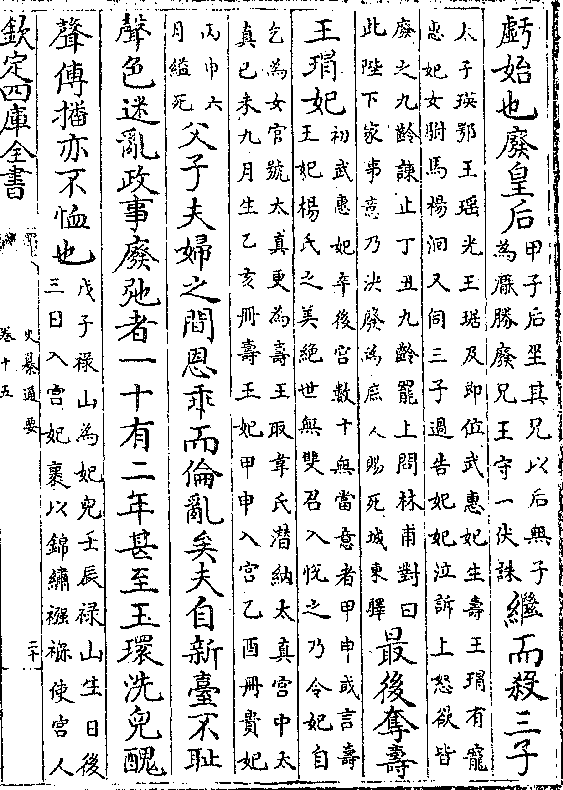 虧始也廢皇后
甲子后坐其兄以后無子
為厭勝廢兄王守一伏誅
繼而殺三子
太子瑛鄂王瑤光王琚及即位武惠妃生壽王瑁有寵
惠妃女駙馬楊洄又伺三子過告妃妃泣訴上怒欲皆
廢之九齡諫止丁丑九齡罷上問林甫對曰
此陛下家事意乃決廢為庶人賜死城東驛
最後奪壽
王瑁妃
初武惠妃卒後宮數十無當意者甲申或言壽
王妃楊氏之美絕世無雙召入悅之乃令妃自
乞為女官號太真更為壽王取韋氏潛納太真宮中太
真己未九月生乙亥冊壽王妃甲申入宮乙酉冊貴妃
丙申六
月縊死
父子夫婦之間恩乖而倫亂矣夫自新臺不耻
聲色迷亂政事廢弛者一十有二年甚至玉環洗兒醜
聲傳播亦不恤也
戊子祿山為妃兒壬辰祿山生日後
三日入宮妃裹以錦繡襁褓使宮人
欽定四庫全書
史纂通要
卷十五
二十